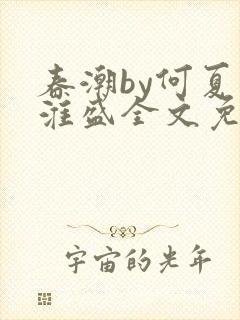 春潮by何夏
淮盛全文免
宇宙的光年